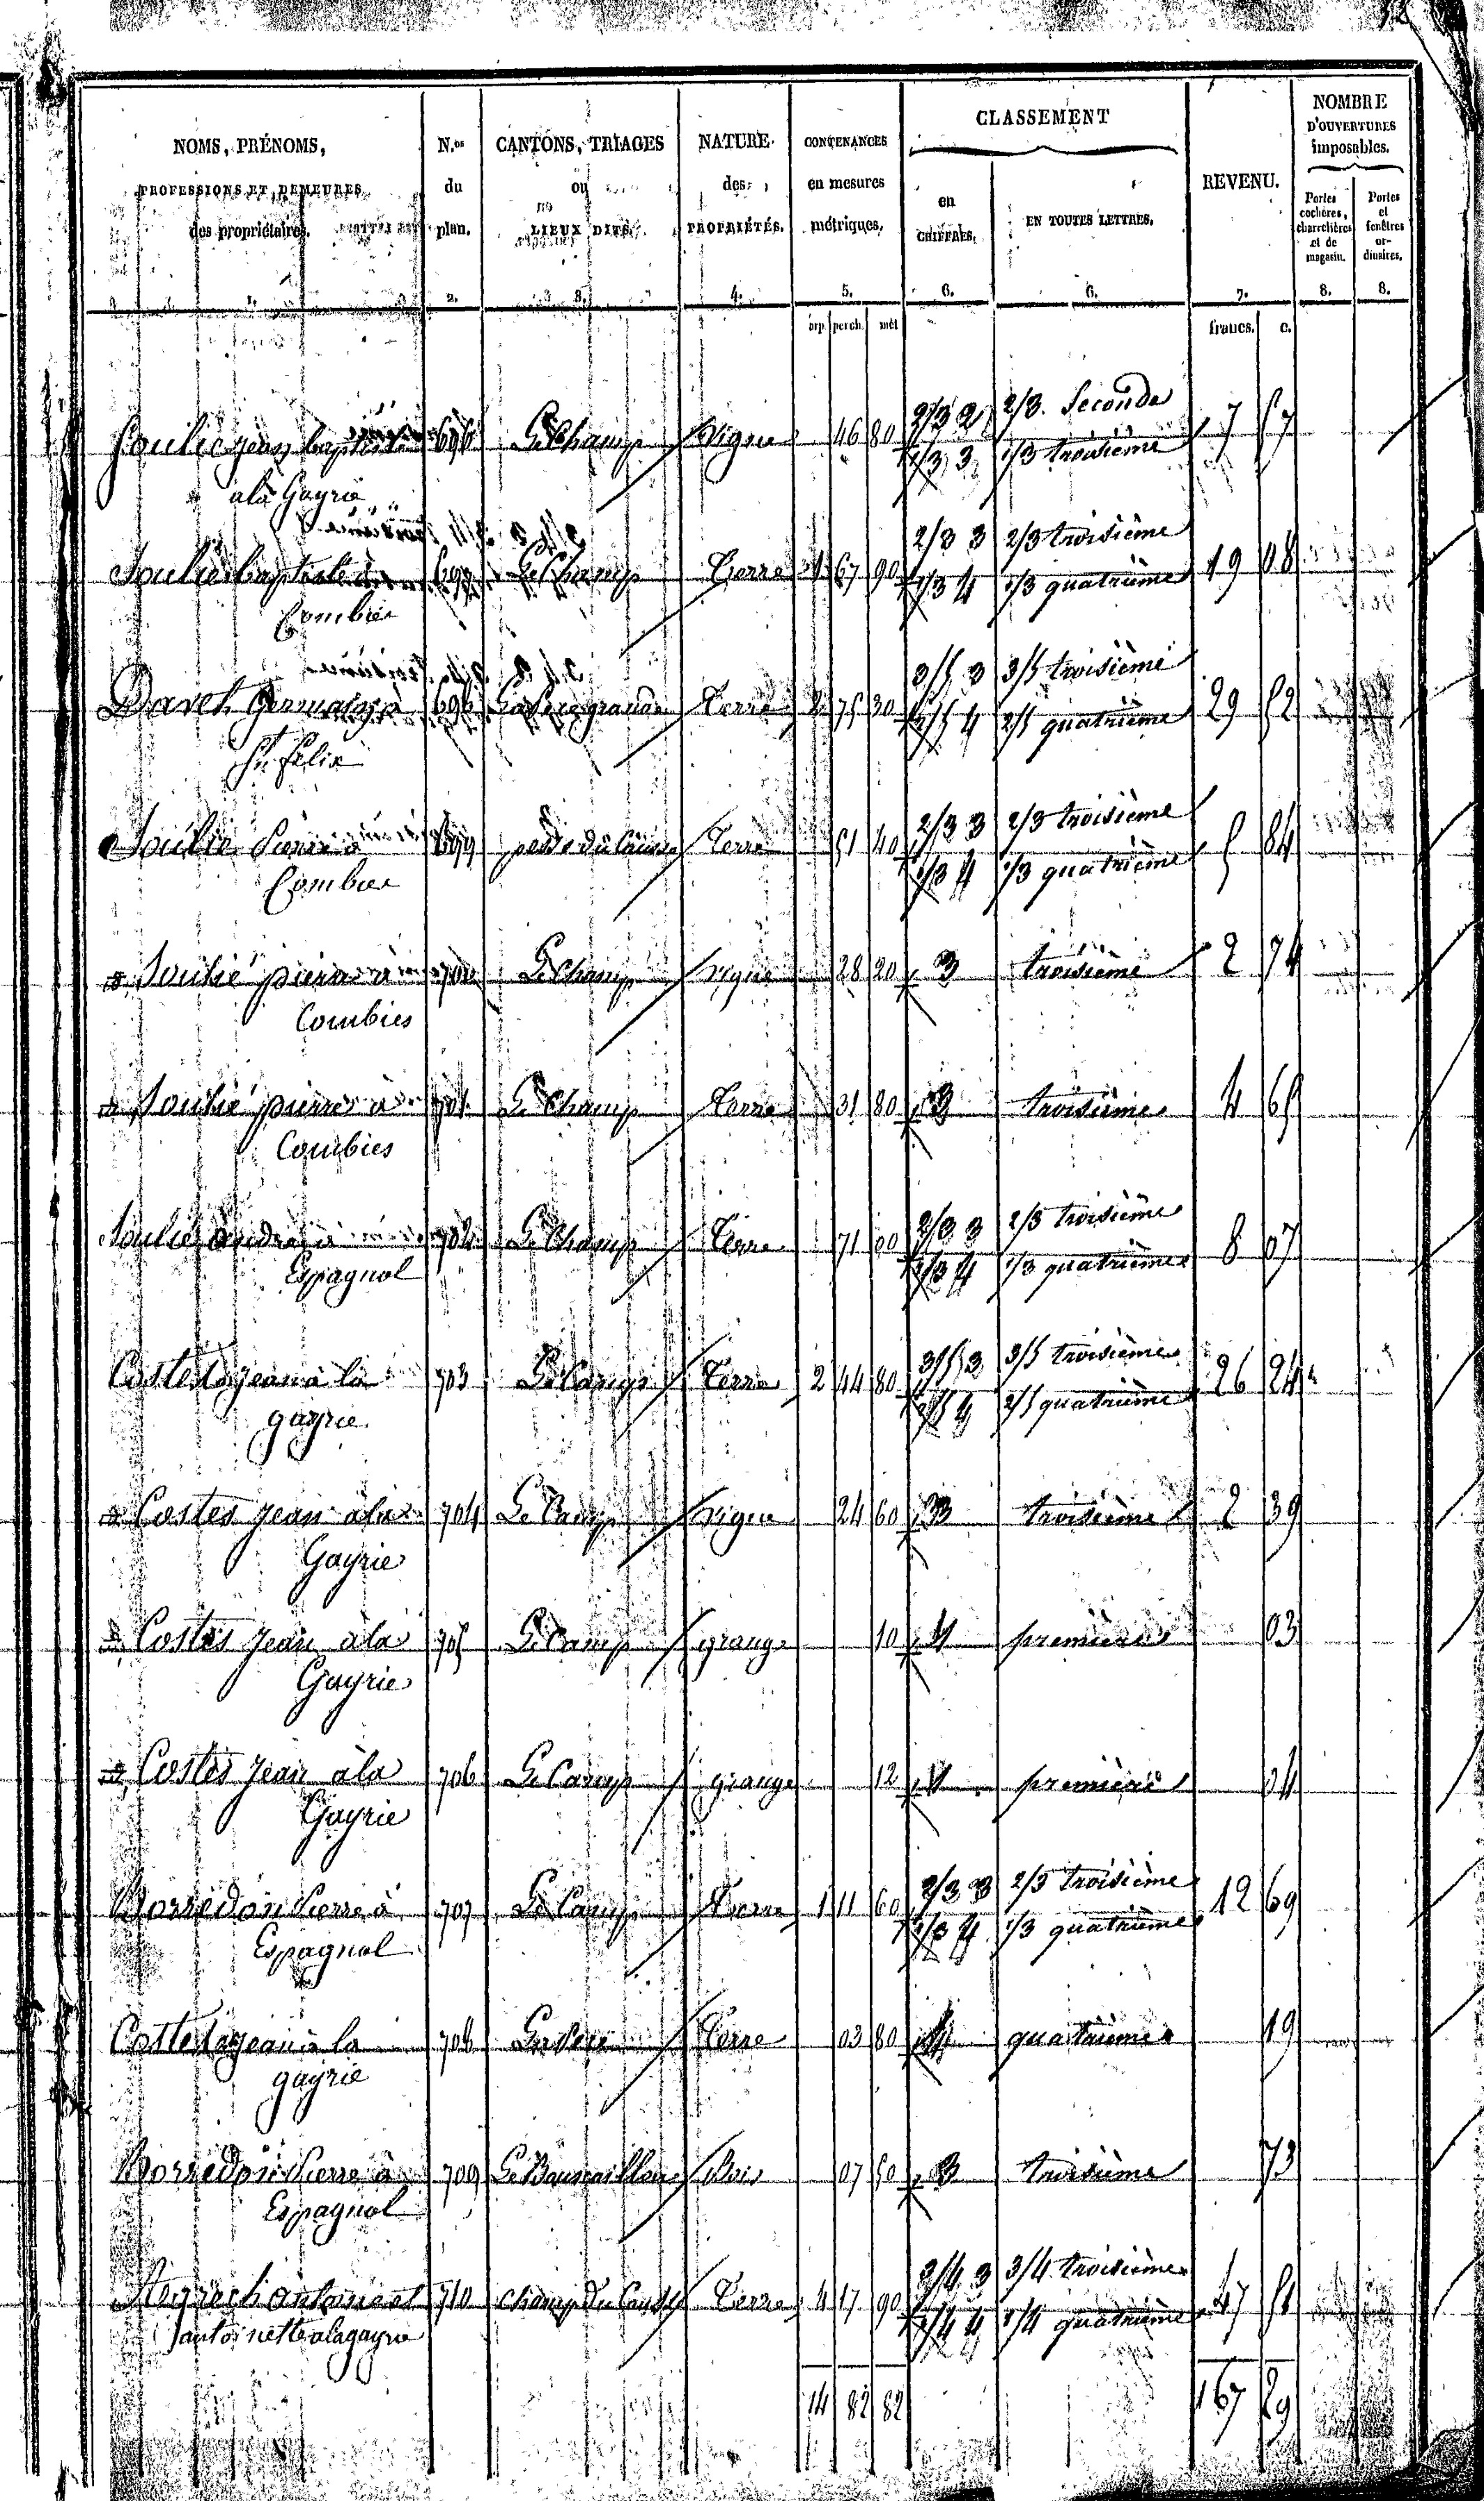 NOMS, PRÉNOMS,
PROFESSIONS ET DEMEURES
des propriétaires.
1.
N.os
du
plan.
2.
CANTONS, TRIAGES
ou
LIEUX DITS.
3.
NATURE
des
PROPRIÉTÉS.
4.
CONTENANCES
en mesures
métriques.
5.
arp. perch. mèt
CLASSEMENT
en
CHIFFRES.
6.
EN TOUTES LETTRES.
6.
REVENU.
7.
francs. c.
NOMBRE
D'OUVERTURES
imposables.
Portes
cochères,
charretières
et de
magasin.
8.
Portes
et
fenêtres
or-
dinaires.
8.
Soulié jean baptiste 696 Le Champ Vigne 46 80 2/3 2 2/3 Seconde 7 57
à la Gayrie 1/3 3 1/3 troisième
Soulié baptiste à 697 Le Champ Terre 1 67 90 2/3 3 2/3 troisième 19 08
Combies 1/3 4 1/3 quatrième
Germain à 698 grande Terre 2 75 30 3/5 3 3/5 troisième 29 52
St felix 2/5 4 2/5 quatrième
Soulié Pierre à 699 du Terre 51 40 2/3 3 2/3 troisième 5 84
Combies 1/3 4 1/3 quatrième
Soulié pierre à 700 Le Champ vigne 28 20 3 troisième 2 74
Combies
Soulié pierre à 701 Le Champ Terre 31 80 3 troisième 4 65
Combies
Soulié andré à 702 Le Champ Terre 71 00 2/3 3 2/3 troisième 8 07
Espagnol 1/3 4 1/3 quatrième
Costes jean à la 703 Le Camp Terre 2 44 80 3/5 3 3/5 troisième 26 24
gayrie 2/5 4 2/5 quatrième
Costes jean à la 704 Le Camp vigne 24 60 3 troisième 2 39
Gayrie
Costes jean à la 705 Le Camp grange 10 1 première 03
Gayrie
Costes jean à la 706 Le Camp grange 12 1 première 04
Gayrie
Borredon Pierre à 707 Le Camp Terre 1 11 60 2/3 3 2/3 troisième 12 69
Espagnol 1/3 4 1/3 quatrième
Costes jean à la 708 Terre 03 80 4 quatrième 19
gayrie
Borredon Pierre à 709 Bois 07 50 3 troisième 73
Espagnol
antoine et 710 Champ du Terre 4 17 90 3/4 3 3/4 troisième 47 51
antoinette à la gayrie 1/4 4 1/4 quatrième
14 82 82 167 29